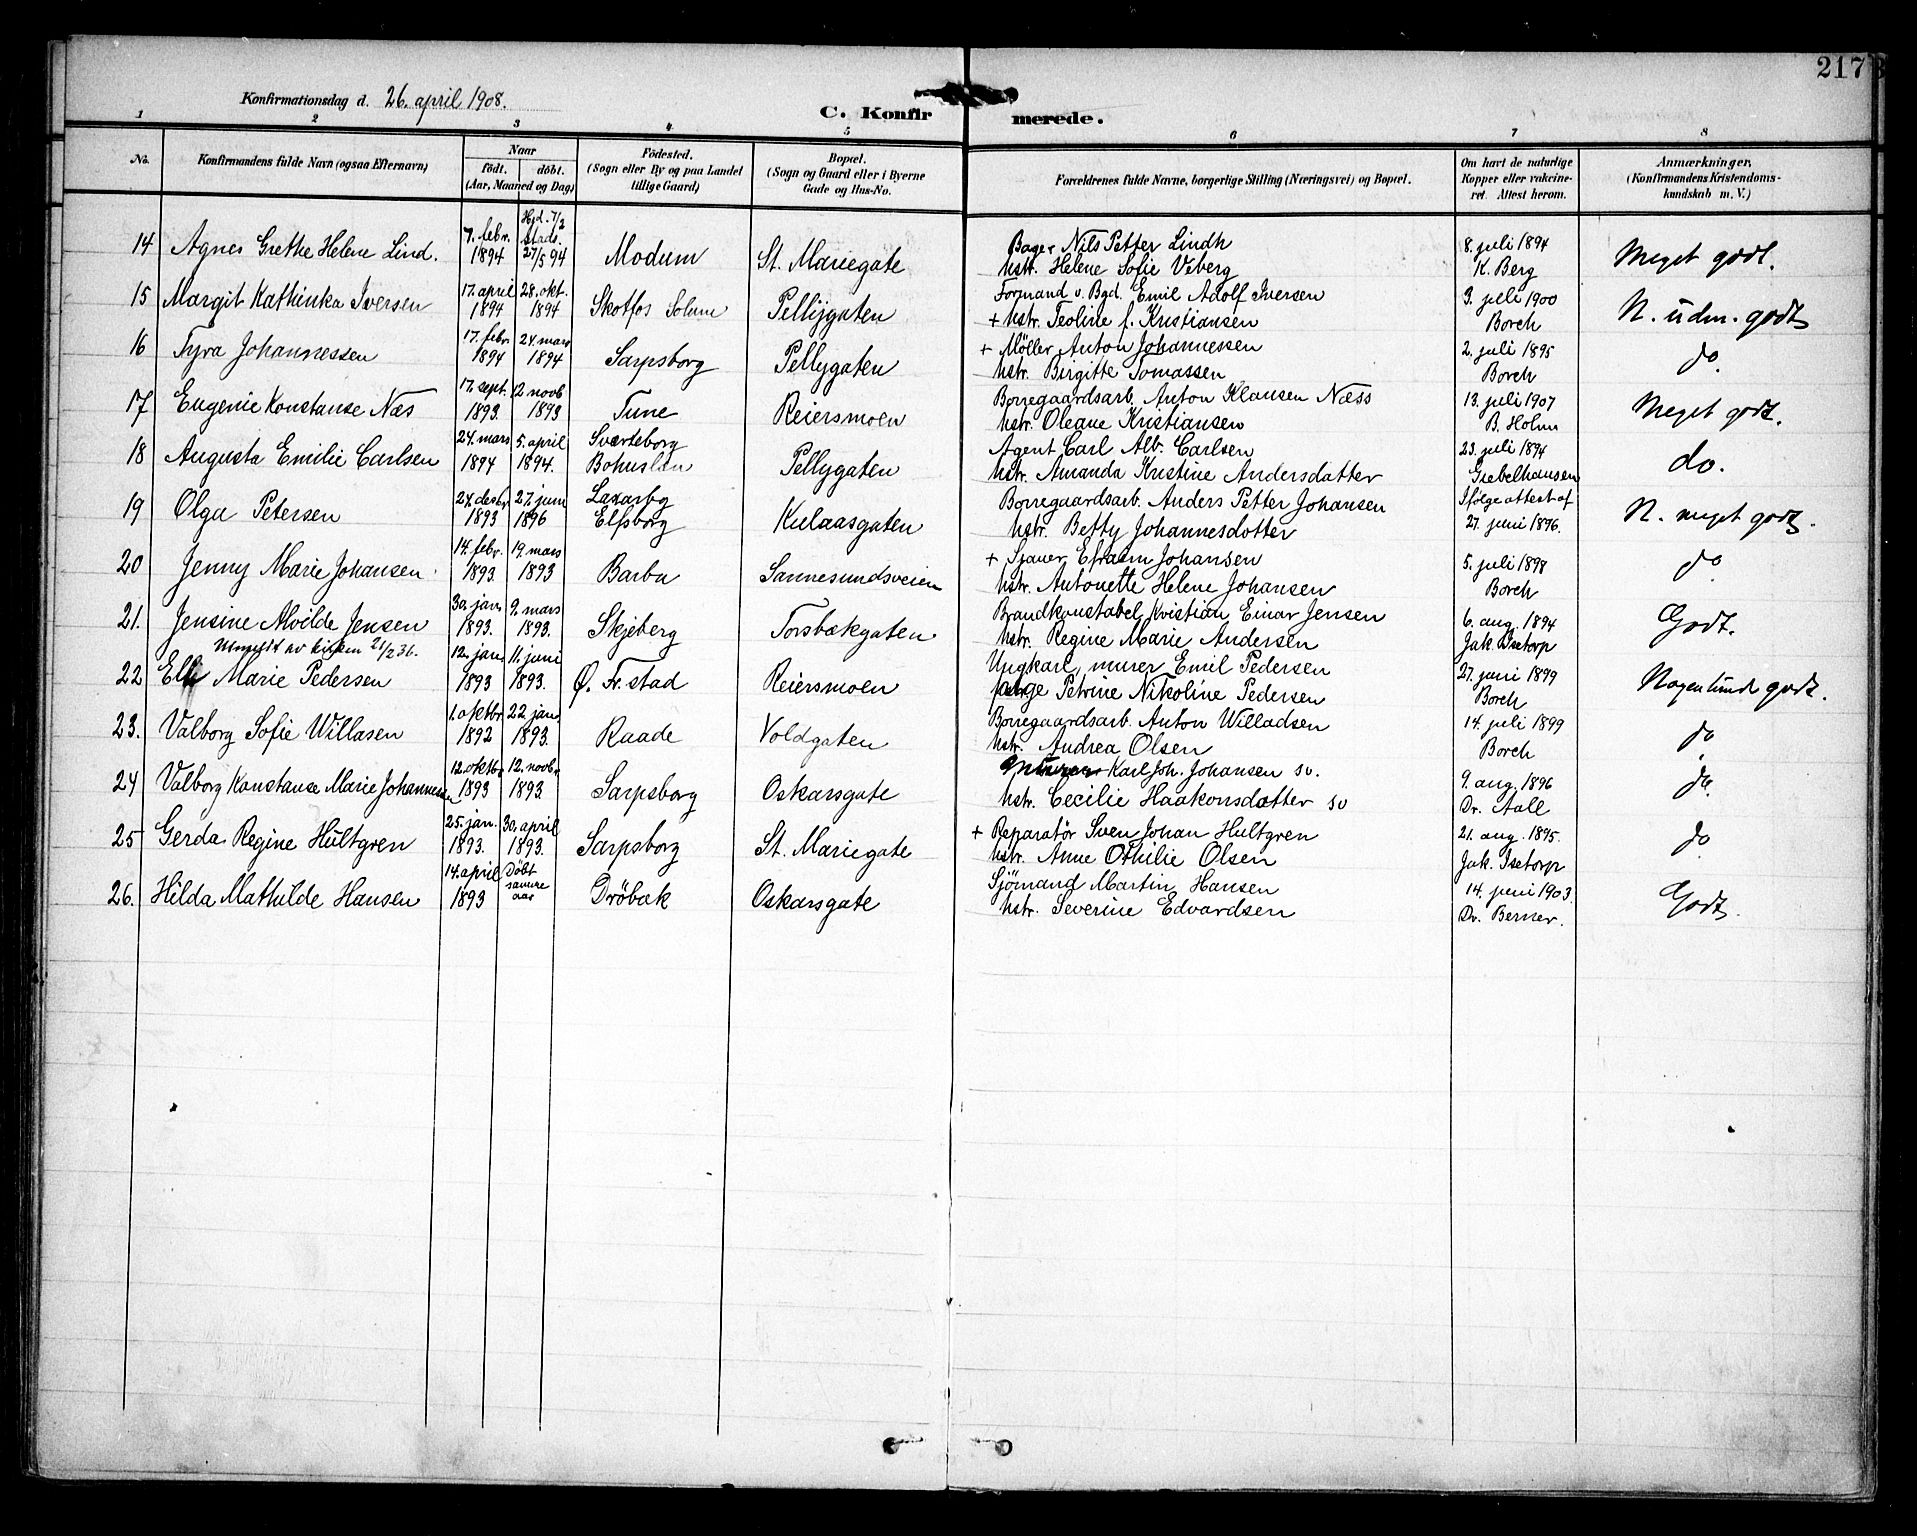 217
Konfirmationsdag d. 26. april 1908.
C. Konfirmerede.
1 2 3 4 5 6 7 8
No.
Konfirmandens fulde Navn (ogsaa Efternavn)
Naar
født. døbt.
(Aar, Maaned og Dag)
Fødested.
(Sogn eller By og paa Landet
tillige Gaard)
Bopæl.
(Sogn og Gaard eller i Byerne
Gade og Hus-No.
Forældrenes fulde Navne, borgerlige Stilling (Næringsvei) og Bopæl.
Om havt de naturlige
Kopper eller vakcine-
ret. Attest herom.
Anmærkninger.
(Konfirmandens Kristendoms-
kundskab m. V.)
14 Agnes Grethe Helene Lind. 7. febr. 1894 Hjd. 7/2 Stads. 27/5 94 Modum St. Mariegate Bager Nils Petter Lindh
hstr. Helene Sofie Viberg 8. juli 1894 K. Berg Meget godt.
15 Margit Kathinka Iversen 17. april 1894 28. okt. 1894 Skotfos Solum Pellygaten Formand v. Bgd. Emil Adolf Iversen
+ hstr. Teoline f. Kristiansen 3. juli 1900 Borch N. udm. godt
16 Tyra Johannessen 17. febr. 1894 24. mars 1894 Sarpsborg Pellygaten + Møller Anton Johannessen
hstr. Birgitte Tomassen 2. juli 1895 Borch do
17 Eugenie Konstanse Næs 17. sept. 1893. 12 novb 1893 Tune Reiersmoen Borregaardsarb. Anton Klausen Næss
hstr. Oleane Kristiansen 13. juli 1907 B. Holm Meget godt.
18 Augusta Emilie Carlsen 24. mars 1894 5. april 1894. Svarteborg Bohuslän Pellygaten Agent Carl Alb. Carlsen
hstr. Amanda Kristine Andersdatter 23. juli 1894 Giebelhausen do.
19 Olga Petersen 24. desbr 1893 27. juni 1896 Laxarby Elfsborg Kulaasgaten Borregaardsarb. Anders Petter Johansen
hstr. Betty Johannesdotter Ifølge attest af 27. juni 1896. N. meget godt.
20 Jenny Marie Johansen 14. febr. 1893. 19. mars 1893 Barbu Sannesundsveien + Sjauer Efraim Johansen
hstr. Antonette Helene Johansen 5. juli 1898 Borch do
21. Jensine Alvilde Jensen 30. jan. 1893. 9. mars 1893. Skjeberg Torsbækgaten Brandkonstabel Kristian Einar Jensen
hstr. Regine Marie Andersen 6. aug. 1894 Jak. Isetorp Godt.
Utmeldt av kirken 21/2 36.
22 Marie Pedersen 12. jan. 1893 11. juni 1893. Ø. Fr.stad Reiersmoen Ungkarl, murer Emil Pedersen
pige Petrine Nikoline Pedersen 27. juni 1899 Borch Nogenlunde godt.
23. Valborg Sofie Willasen 1. oktbr. 1892 22. jan. 1893. Raade Voldgaten Borregaardsarb. Anton Willadsen
hstr. Andrea Olsen 14. juli 1899 Borch do
24 Valborg Konstanse Marie Johannesen 12. oktb. 1893 12. novb. 1893. Sarpsborg Oskarsgate Karl Joh. Johansen sv.
hstr. Cecilie Haakonsdatter sv 9. aug. 1896 Dr. Aall do.
25 Gerda Regine Hultgren 25. jan. 1893. 30. april 1893. Sarpsborg St. Mariegate + Reparatør Sven Johan Hultgren
hstr. Anne Othilie Olsen 21. aug. 1895. Jak. Isetorp do
26. Hilda Mathilde Hansen 14. april 1893 Døbt samme aar Drøbak Oskarsgate Sjømand Martin Hansen
hstr. Severine Edvardsen 14. juni 1903. Dr. Berner. Godt.